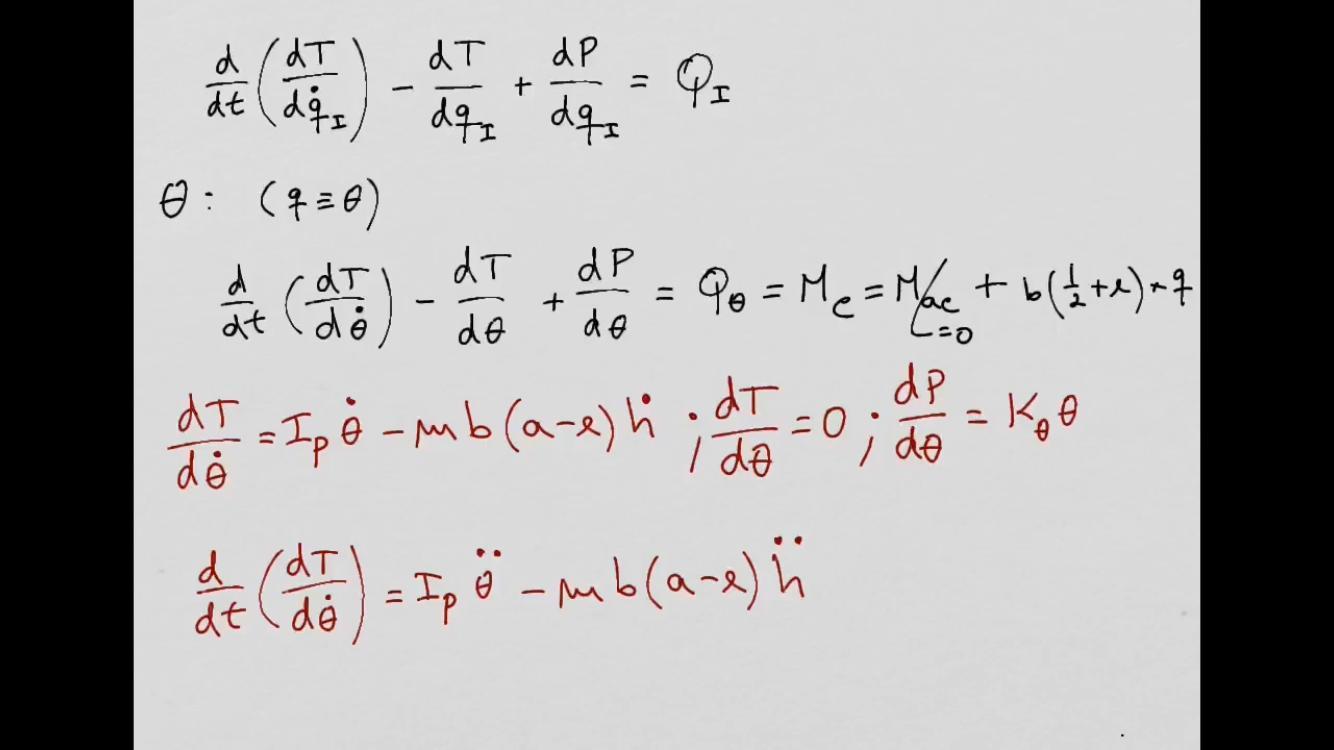 d/dt (dT/dq̇_I) − dT/dq_I + dP/dq_I = Q_I
θ : (q ≡ θ)
d/dt (dT/dθ̇) − dT/dθ + dP/dθ = Q_θ = M_e = M/ac_{L=0} + b(1/2 + e) * q
dT/dθ̇ = I_p θ̇ − m b(a−e) ḣ ; dT/dθ = 0 ; dP/dθ = K_θ θ
d/dt (dT/dθ̇) = I_p θ̈ − m b(a−e) ḧ